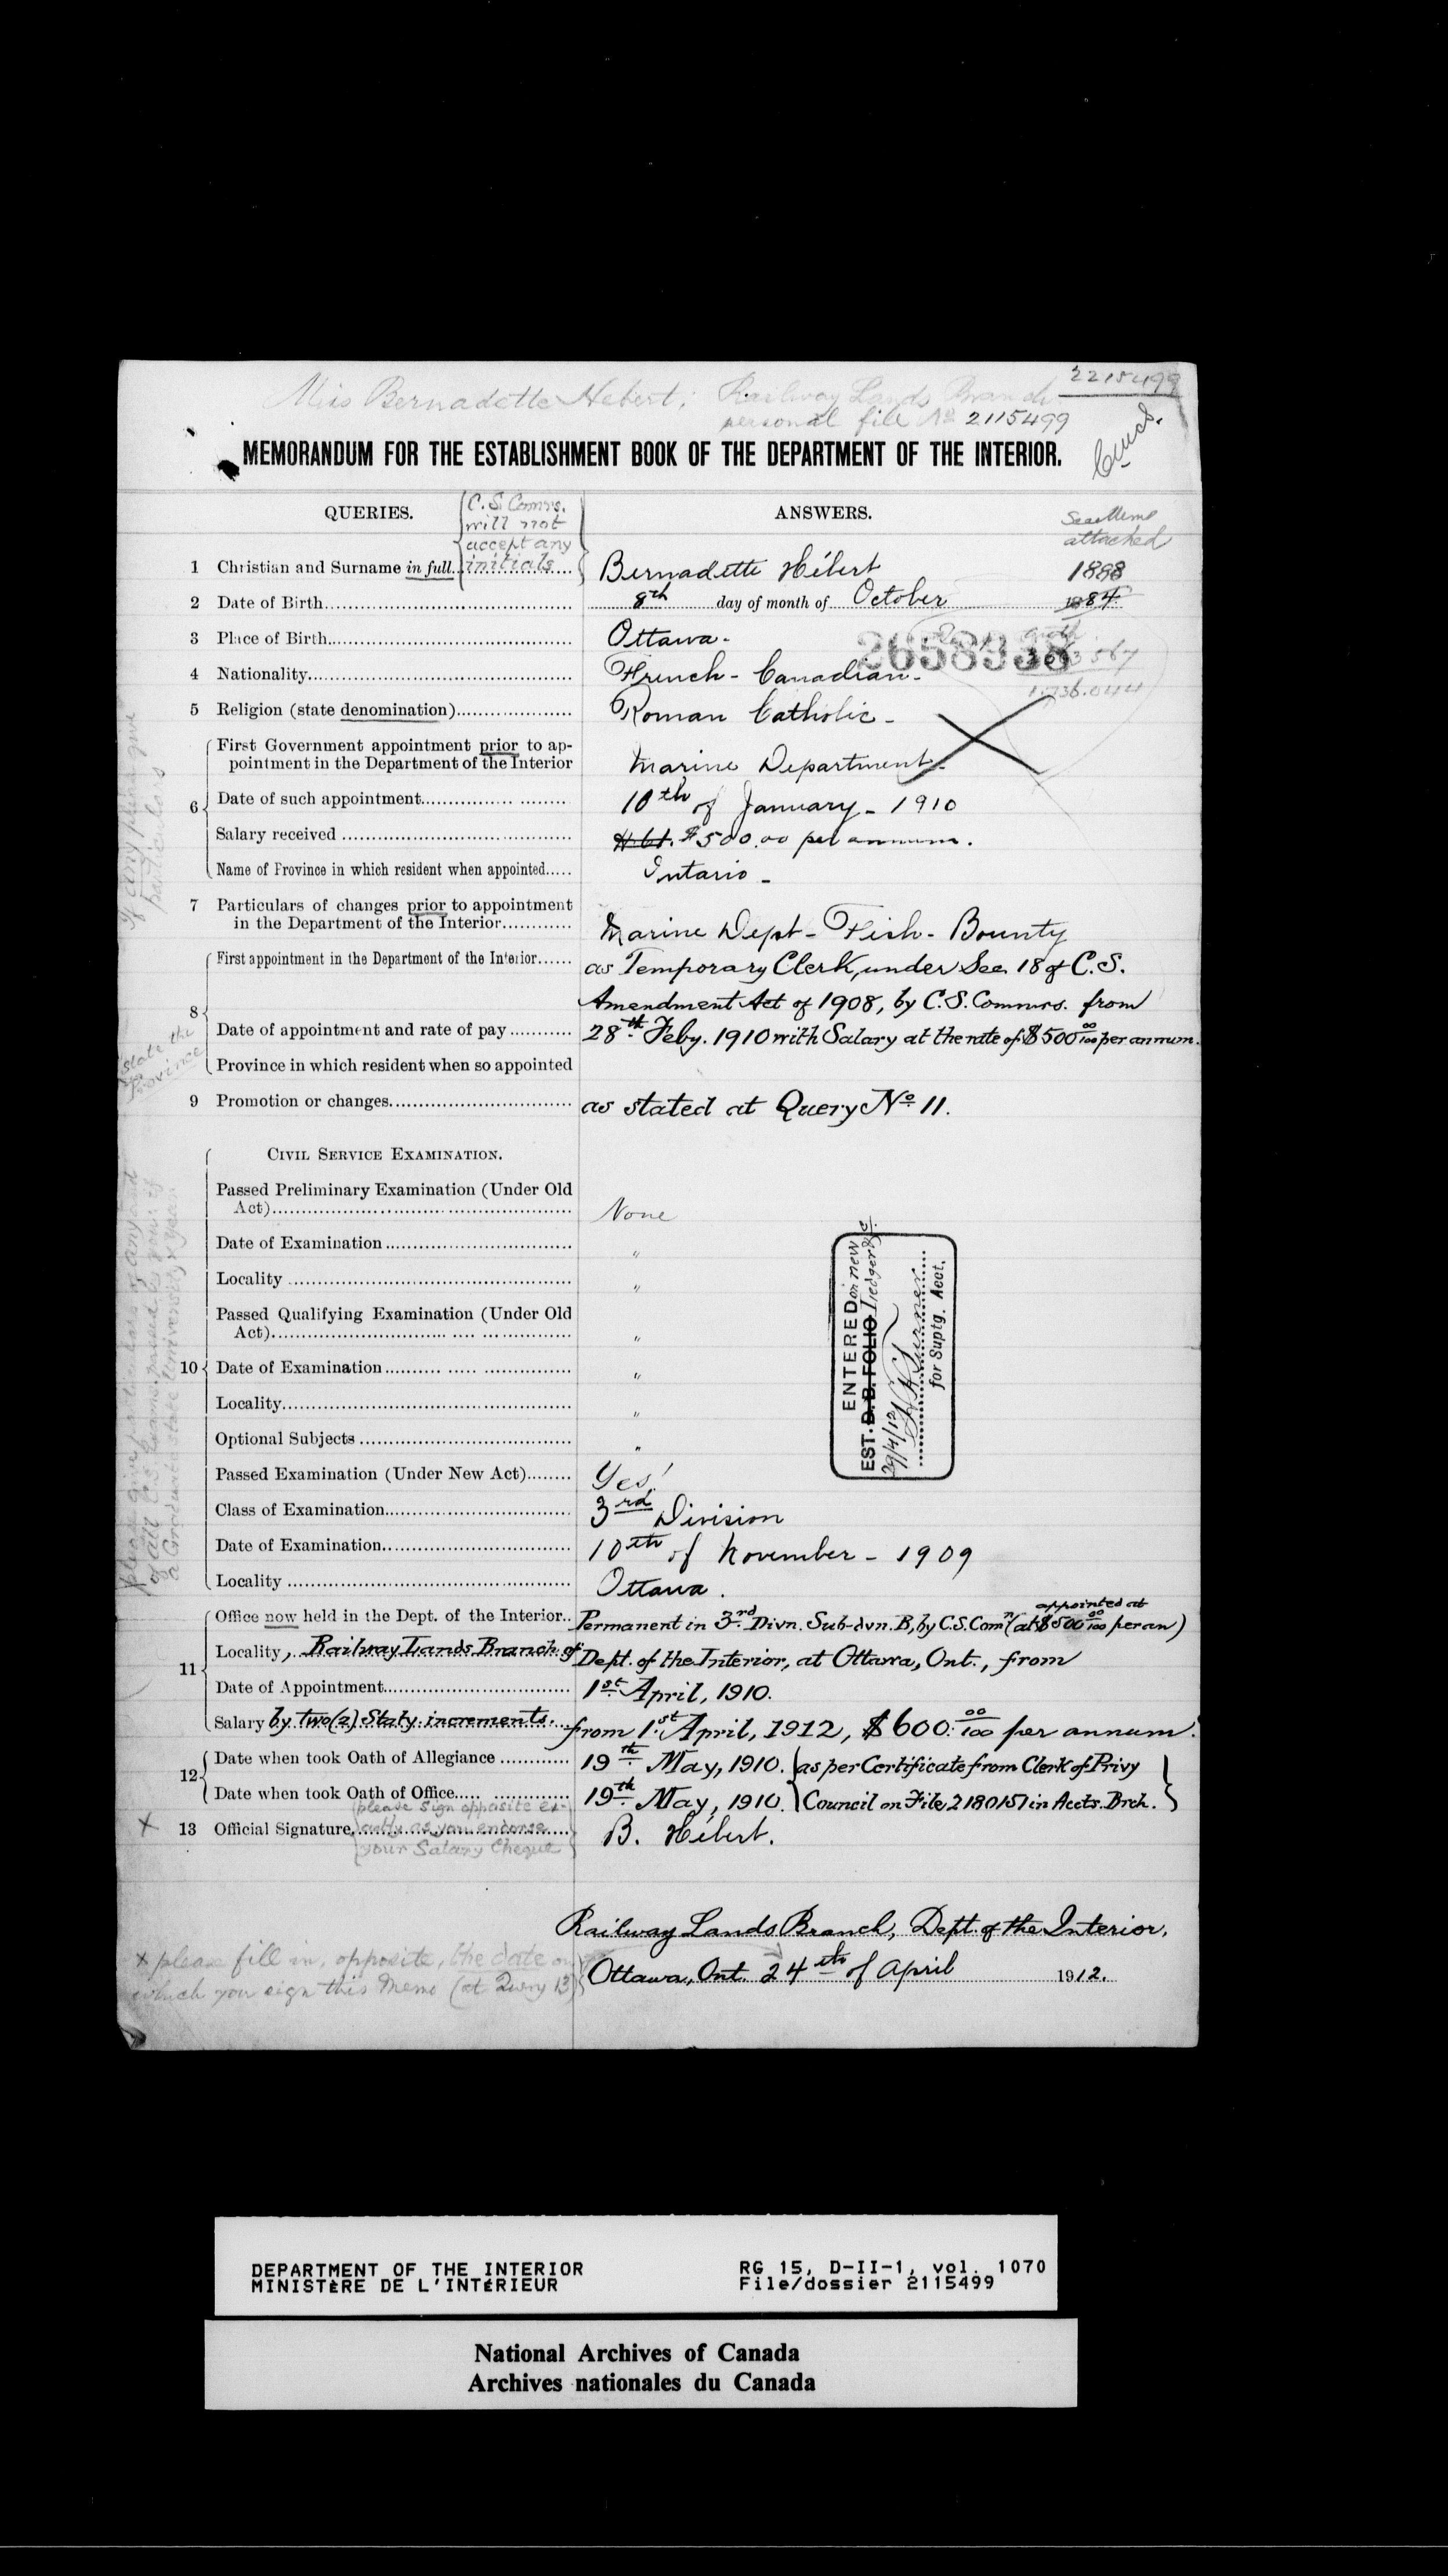 2215499
Miss Bernadette Hebert; Railway Lands Branch
personal file No 2115499
MEMORANDUM FOR THE ESTABLISHMENT BOOK OF THE DEPARTMENT OF THE INTERIOR.
QUERIES.
{C. S. Comrs. will not accept any initials}
ANSWERS.
See Memo attached
1 Christian and Surname in full Bernadette Hébert 1888
2 Date of Birth 8th day of month of October 1884
3 Place of Birth Ottawa-
2658938
4 Nationality French-Canadian-
5 Religion (state denomination) Roman Catholic-
6 First Government appointment prior to ap-
pointment in the Department of the Interior Marine Department-
Date of such appointment 10th of January - 1910
Salary received $500.00 per annum.
Name of Province in which resident when appointed Ontario-
If any please give particulars
7 Particulars of changes prior to appointment
in the Department of the Interior Marine Dept - Fish - Bounty
8 First appointment in the Department of the Interior as Temporary Clerk, under Sec. 18 of C.S.
Amendment Act of 1908, by C.S. Commrs. from
Date of appointment and rate of pay 28th Feby. 1910 with Salary at the rate of $500 00/100 per annum.
Province in which resident when so appointed
state the Province
9 Promotion or changes as stated at Query No 11.
CIVIL SERVICE EXAMINATION.
10 Passed Preliminary Examination (Under Old
Act) None
Date of Examination "
Locality "
Passed Qualifying Examination (Under Old
Act) "
Date of Examination "
Locality "
Optional Subjects "
Passed Examination (Under New Act) Yes!
Class of Examination 3rd Division
Date of Examination 10th of November - 1909
Locality Ottawa.
ENTERED on new
EST. D. B. FOLIO Ledger
29/4/12
for Suptg. Acct.
11 Office now held in the Dept. of the Interior Permanent in 3rd Divn. Sub-dvn. B, by C.S. Comn (appointed at $500 00/100 per an)
Locality, Railway Lands Branch of Dept. of the Interior, at Ottawa, Ont., from
Date of Appointment 1st April, 1910.
Salary by two (2) Staty. increments. from 1st April, 1912, $600. 00/100 per annum.
12 Date when took Oath of Allegiance 19th May, 1910. {as per Certificate from Clerk of Privy
Date when took Oath of Office 19th May, 1910. {Council on File 2180151 in Accts. Brch.}
X 13 Official Signature {please sign opposite exactly as you endorse your Salary Cheque} B. Hébert.
Railway Lands Branch, Dept. of the Interior,
x please fill in, opposite, the date on
which you sign this Memo (at Query 13)} Ottawa, Ont. 24th of April 1912.
DEPARTMENT OF THE INTERIOR
MINISTÈRE DE L'INTÉRIEUR
RG 15, D-II-1, vol. 1070
File/dossier 2115499
National Archives of Canada
Archives nationales du Canada